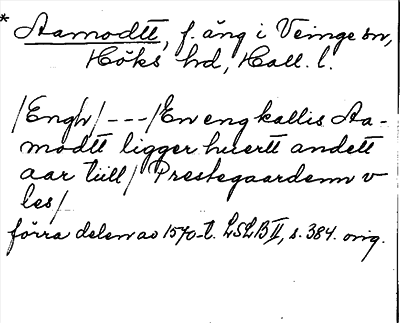 * Aamodtt, f. äng i Veinge sn,
Höks hd, Hall. l.
/Engh/ --- /En eng kallis Aa-
modtt ligger huertt andett
aar till/ Prestegaardenn v
les/
förra delen av 1570-t. LSLB II, s. 384. orig.